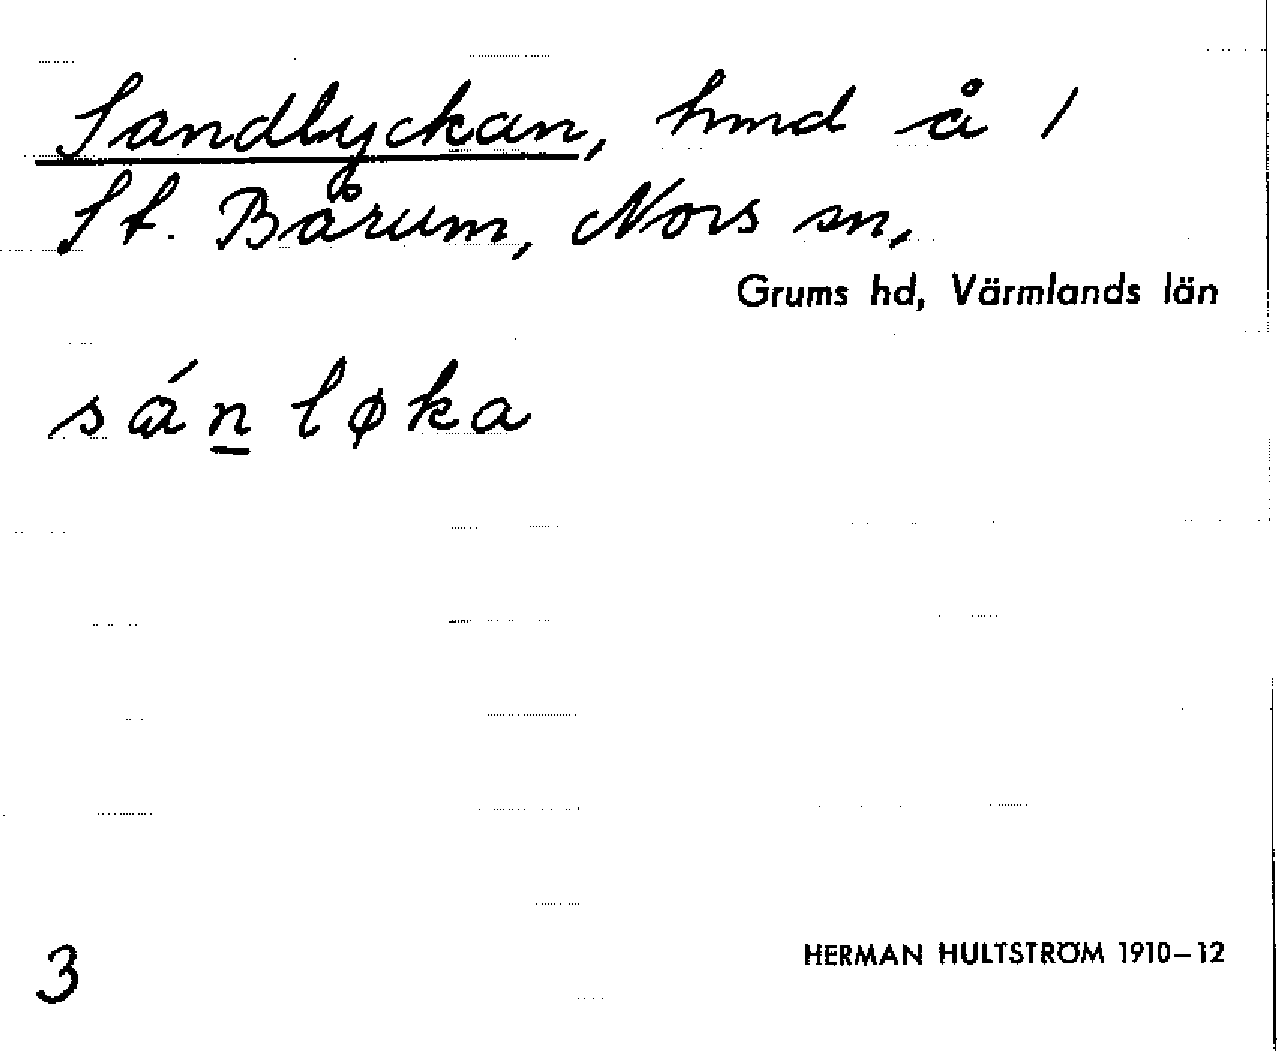 Sandlyckan, hmd å 1
St. Bårum, Nors sn,
Grums hd, Värmlands län
sán̲løka
3
HERMAN HULTSTRÖM 1910–12